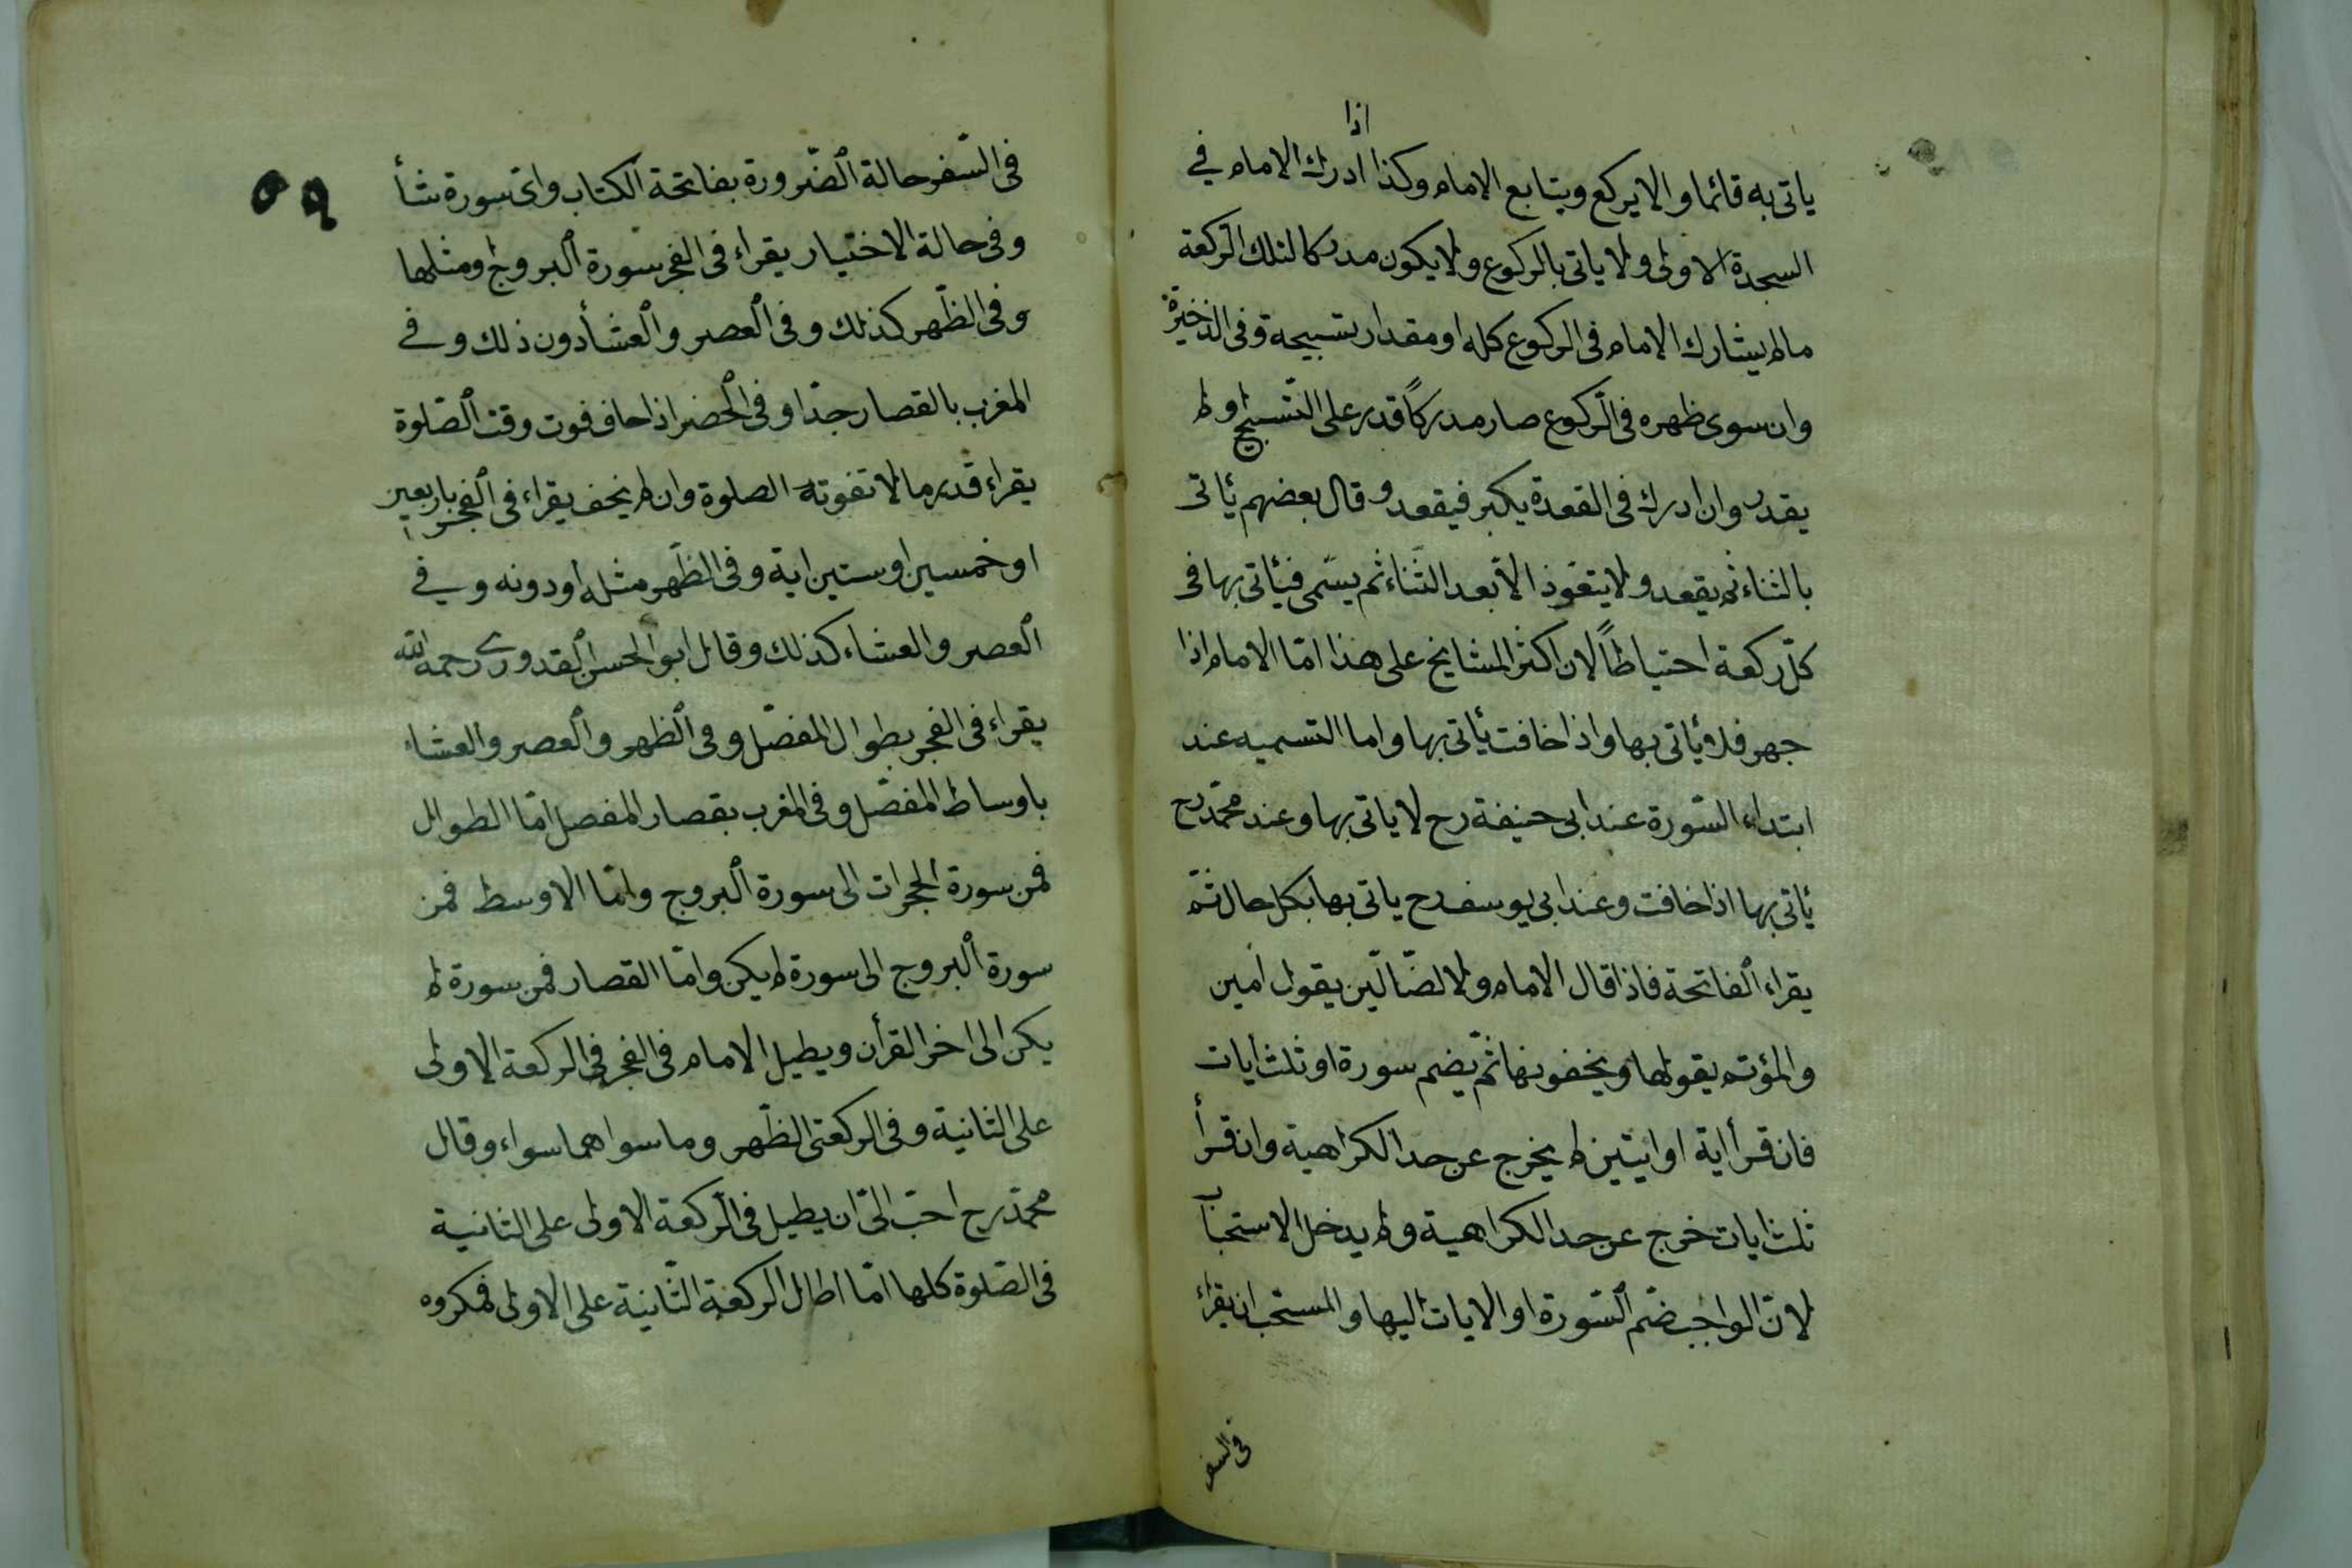 اذا
ياتى به قائما والا يركع ويتابع الامام وكذا ادرك الامام في
السجدة الاولى ولا ياتى بالركوع ولا يكون مدركا لتلك الركعة
مالم يشارك الامام فى الركوع كله او مقدار تسبيحة وفى الذخيرة
وان سوى ظهره فى الركوع صار مدركاً قدر على التسبيح او لم
يقدر وان ادرك فى القعدة يكبر فيقعد وقال بعضهم يأتى
بالثناء ثم يقعد ولا يتعوذ الا بعد الثناء ثم يسمى فيأتى بها فى
كل ركعة احتياطاً لان اكثر المشايخ على هذا امّا الامام اذا
جهر فلا يأتى بها واذا خافت يأتى بها واما التسميه عند
ابتداء السّورة عند ابى حنيفة رح لا ياتى بها وعند محمّد رح
يأتى بها اذا خافت وعند ابى يوسف رح ياتى بها بكل حال ثمّ
يقراء الفاتحة فاذا قال الامام ولا الضّالّين يقول امين
والمؤتم يقولها ويخفونها ثمّ يضم سورة او ثلث ايات
فان قرأ اية او ايتين لم يخرج عن حد الكراهية وان قرأ
ثلث ايات خرج عن حد الكراهية ولم يدخل الاستحباب
لانّ الواجب ضمّ السّورة او الايات اليها والمستحب ان يقراء
فى السفر
٥٩
فى السّفر حالة الضّرورة بفاتحة الكتاب واىّ سورة شأ
وفى حالة الاختيار يقراء فى الفجر سورة البروج او مثلها
وفى الظّهر كذلك وفى العصر والعشأ دون ذلك وفي
المغرب بالقصار جدّا وفى الحضر اذا خاف فوت وقت الصّلوة
يقراء قدر ما لا تفوته الصلوة وان لم يخف يقراء فى الفجر باربعين
او خمسين او ستين اية وفى الظّهر مثله او دونه وفي
العصر والعشاء كذلك وقال ابو الحسن القدورى رحمه الله
يقراء فى الفجر بطوال المفصّل وفى الظهر والعصر والعشاء
باوساط المفصّل وفى المغرب بقصار المفصل امّا الطوال
فمن سورة الحجرات الى سورة البروج وامّا الاوسط فمن
سورة البروج الى سورة لم يكن وامّا القصار فمن سورة لم
يكن الى اخر القرأن ويطيل الامام فى الفجر فى الركعة الاولى
على الثانية وفى الركعتى الظّهر وما سواهما سواء وقال
محمّد رح احبّ الىّ ان يطيل فى الركعة الاولى على الثانية
فى الصّلوة كلها امّا اطال الركعة الثّانية على الاولى فمكروه